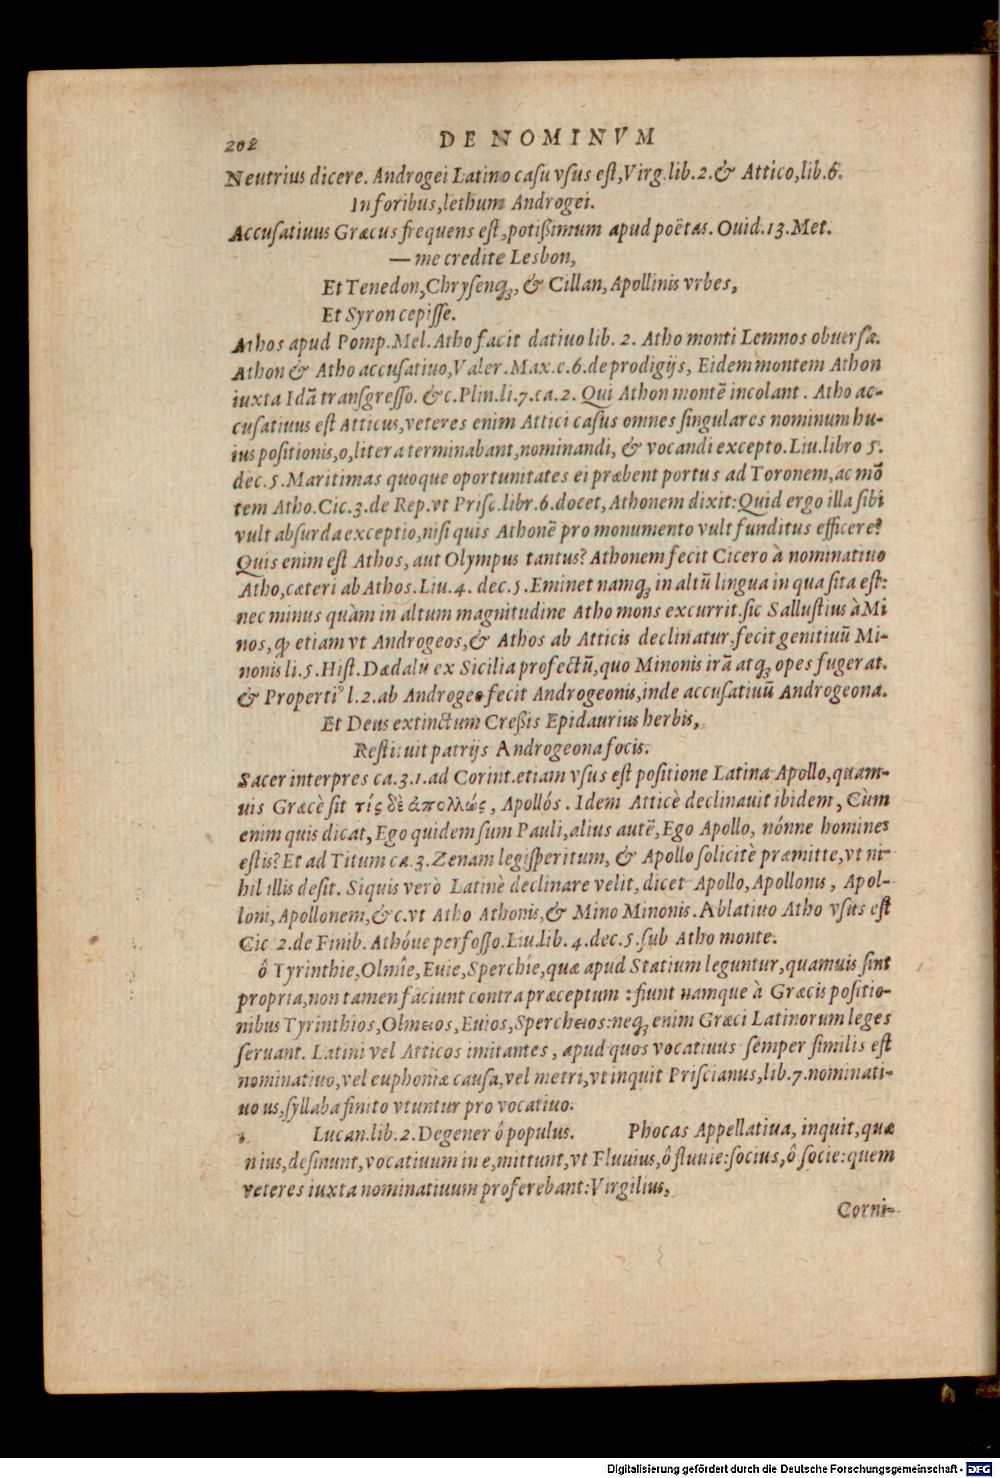 202 DE NOMINVM
Neutrius dicere. Androgei Latino casu vsus est, Virg. lib. 2. & Attico, lib. 6.
In foribus, lethum Androgei.
Accusatiuus Græcus frequens est, potißimum apud poëtas. Ouid. 13. Met.
— me credite Lesbon,
Et Tenedon, Chrysenq́₃, & Cillan, Apollinis vrbes,
Et Syron cepisse.
Athos apud Pomp. Mel. Atho facit datiuo lib. 2. Atho monti Lemnos obuersa.
Athon & Atho accusatiuo, Valer. Max. c. 6. de prodigijs, Eidem montem Athon
iuxta Idā transgresso. &c. Plin. li. 7. ca. 2. Qui Athon montē incolant. Atho ac-
cusatiuus est Atticus, veteres enim Attici casus omnes singulares nominum hu-
ius positionis, o, litera terminabant, nominandi, & vocandi excepto. Liu. libro 5.
dec. 5. Maritimas quoque oportunitates ei præbent portus ad Toronem, ac mō
tem Atho. Cic. 3. de Rep. vt Prisc. libr. 6. docet, Athonem dixit: Quid ergo illa sibi
vult absurda exceptio, nisi quis Athonē pro monumento vult funditus efficere?
Quis enim est Athos, aut Olympus tantus? Athonem fecit Cicero à nominatiuo
Atho, cæteri ab Athos. Liu. 4. dec. 5. Eminet namq₃ in altū lingua in qua sita est:
nec minus quàm in altum magnitudine Atho mons excurrit. sic Sallustius à Mi
nos, ꝙ etiam vt Androgeos, & Athos ab Atticis declinatur, fecit genitiuū Mi-
nonis li. 5. Hist. Dædalū ex Sicilia profectū, quo Minonis irā atq₃ opes fugerat.
& Propertiꝰ l. 2. ab Androgeo fecit Androgeonis, inde accusatiuū Androgeona.
Et Deus extinctum Creßis Epidaurius herbis,
Restituit patrijs Androgeona focis.
Sacer interpres ca. 3. 1. ad Corint. etiam vsus est positione Latina Apollo, quam-
uis Græcè sit τίς δὲ ἀπολλώς, Apollós. Idem Atticè declinauit ibidem, Cùm
enim quis dicat, Ego quidem sum Pauli, alius autē, Ego Apollo, nónne homines
estis? Et ad Titum ca. 3. Zenam legisperitum, & Apollo solicitè præmitte, vt ni-
hil illis desit. Siquis verò Latinè declinare velit, dicet Apollo, Apollonis, Apol-
loni, Apollonem, &c. vt Atho Athonis, & Mino Minonis. Ablatiuo Atho vsus est
Cic 2. de Finib. Athóue perfosso. Liu. lib. 4. dec. 5. sub Atho monte.
ô Tyrinthie, Olmîe, Euie, Sperchîe, quæ apud Statium leguntur, quamuis sint
propria, non tamen faciunt contra præceptum: fiunt namque à Græcis positio-
nibus Tyrinthios, Olmeios, Euios, Spercheios: neq₃ enim Græci Latinorum leges
seruant. Latini vel Atticos imitantes, apud quos vocatiuus semper similis est
nominatiuo, vel euphoniæ causa, vel metri, vt inquit Priscianus, lib. 7. nominati-
uo us, syllaba finito vtuntur pro vocatiuo.
Lucan. lib. 2. Degener ô populus. Phocas Appellatiua, inquit, quæ
n ius, desinunt, vocatiuum in e, mittunt, vt Fluuius, ô fluuie: socius, ô socie: quem
veteres iuxta nominatiuum proferebant: Virgilius,
Corni-
Digitalisierung gefördert durch die Deutsche Forschungsgemeinschaft - DFG